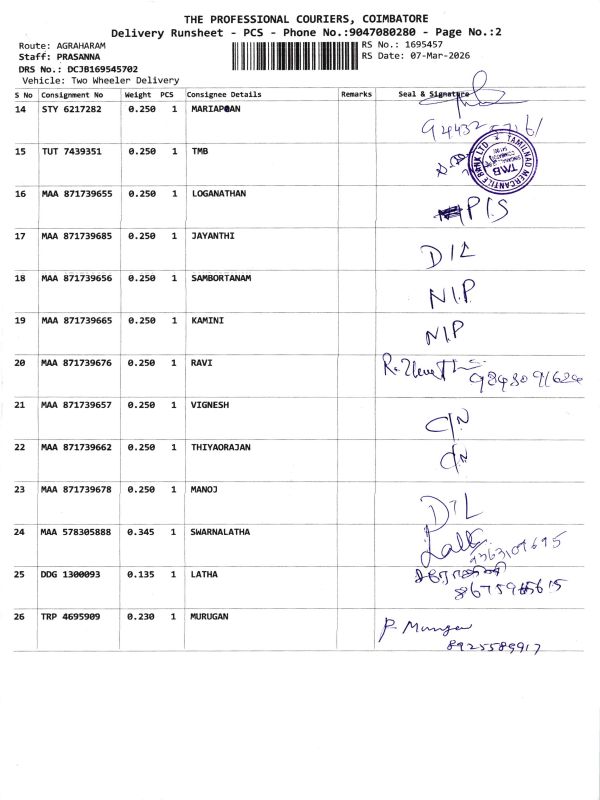 THE PROFESSIONAL COURIERS, COIMBATORE
Delivery Runsheet - PCS - Phone No.:9047080280 - Page No.:2
Route: AGRAHARAM RS No.: 1695457
Staff: PRASANNA RS Date: 07-Mar-2026
DRS No.: DCJB169545702
Vehicle: Two Wheeler Delivery
S No Consignment No Weight PCS Consignee Details Remarks Seal & Signature
14 STY 6217282 0.250 1
15 TUT 7439351 0.250 1 TMB
TAMILNAD MERCANTILE BANK LTD TMB
16 MAA 871739655 0.250 1 LOGANATHAN P/S
17 MAA 871739685 0.250 1 JAYANTHI D/L
18 MAA 871739656 0.250 1 SAMBORTANAM N.I.P.
19 MAA 871739665 0.250 1 KAMINI N.I.P
20 MAA 871739676 0.250 1 RAVI
21 MAA 871739657 0.250 1 VIGNESH C/N
22 MAA 871739662 0.250 1 THIYAORAJAN C/N
23 MAA 871739678 0.250 1 MANOJ D/L
24 MAA 578305888 0.345 1 SWARNALATHA
25 DDG 1300093 0.135 1 LATHA
26 TRP 4695909 0.230 1 MURUGAN P. Murugan
8925589917